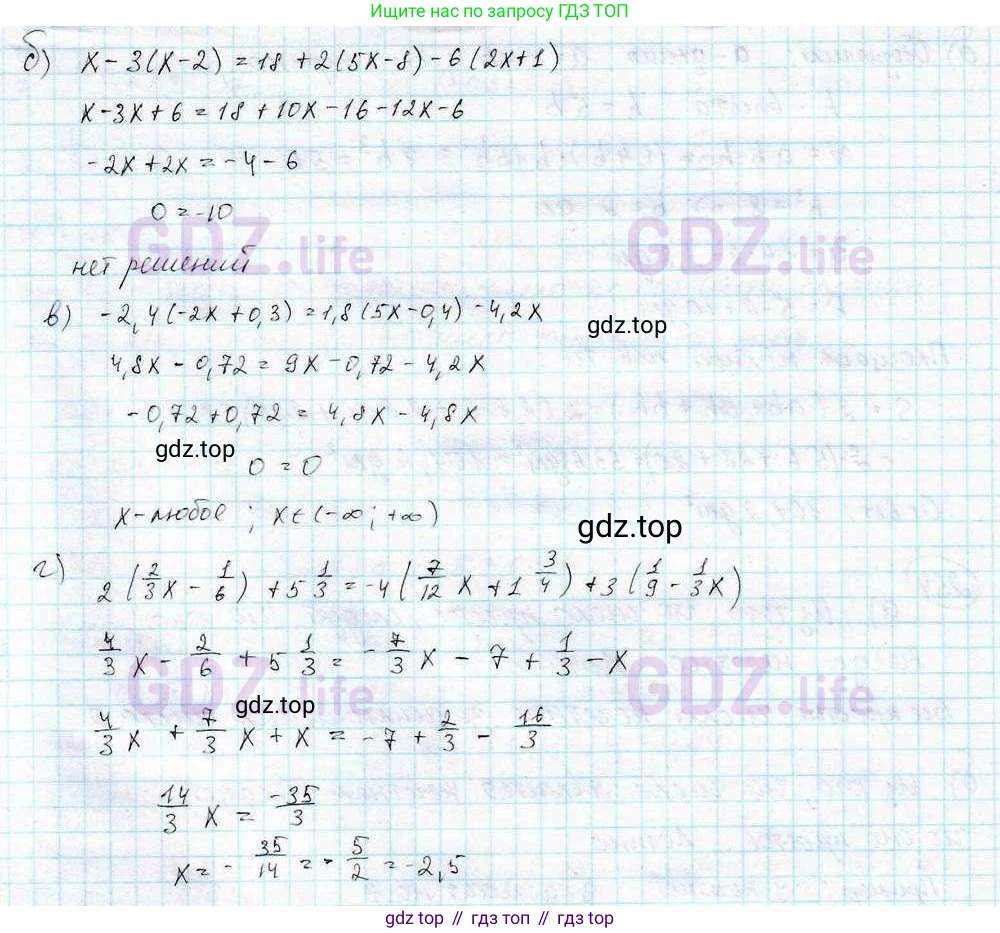 Ищите нас по запросу ГДЗ ТОП
б) x - 3(x-2) = 18 + 2(5x-8) - 6(2x+1)
x - 3x + 6 = 18 + 10x - 16 - 12x - 6
-2x + 2x = -4 - 6
0 = -10
GDZ.life GDZ.life
нет решений
в) -2,4(-2x + 0,3) = 1,8(5x - 0,4) - 4,2x
gdz.top
4,8x - 0,72 = 9x - 0,72 - 4,2x
-0,72 + 0,72 = 4,8x - 4,8x
gdz.top
0 = 0
x - любое ; x∈(-∞; +∞)
gdz.top
г) 2(2/3x - 1/6) + 5 1/3 = -4(7/12x + 1 3/4) + 3(1/9 - 1/3x)
4/3x - 2/6 + 5 1/3 = -7/3x - 7 + 1/3 - x
GDZ.life GDZ.life
gdz.top
4/3x + 7/3x + x = -7 + 2/3 - 16/3
14/3x = -35/3
x = -35/14 = -5/2 = -2,5
gdz top // гдз топ // gdz top